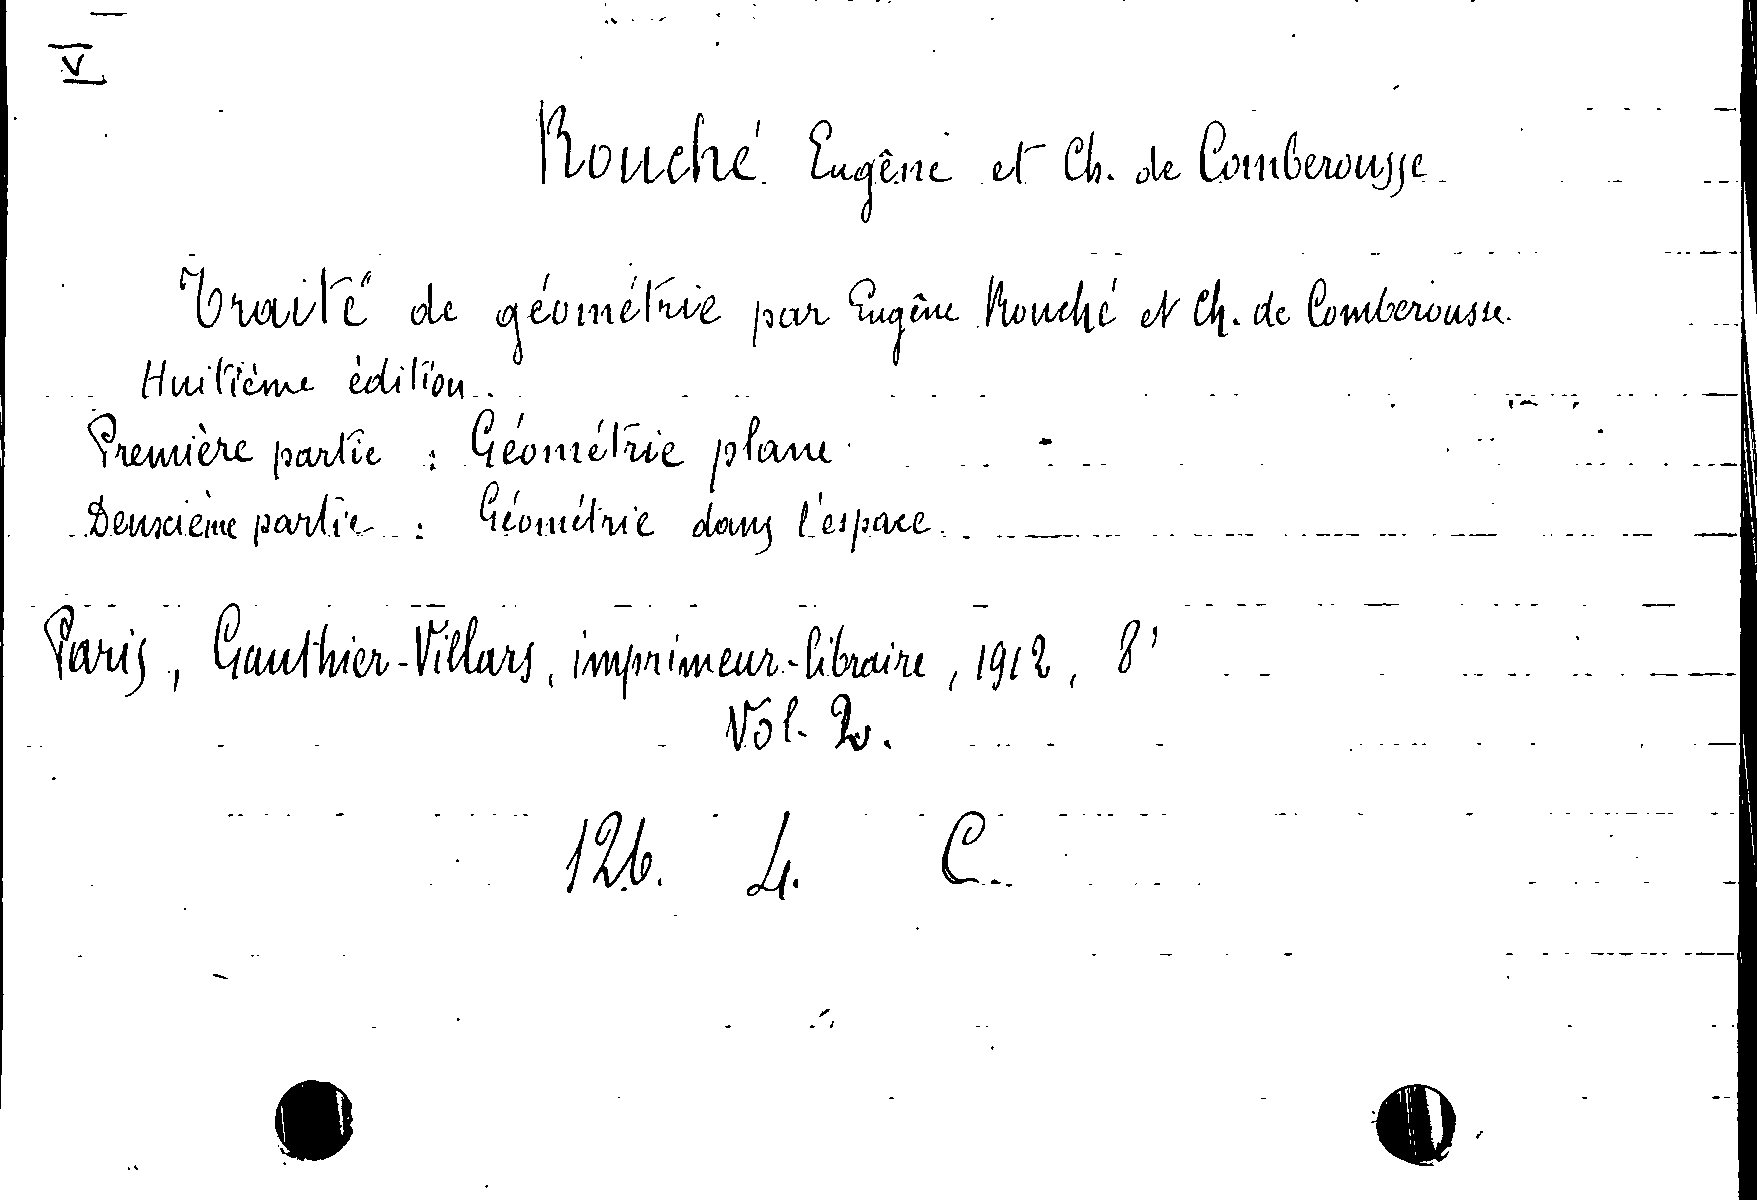 V
Rouché Eugêne et Ch. de Comberousse
Traité de géométrie par Eugêne Rouché et Ch. de Comberousse.
Huitième édition.
Première partie : Géométrie plane
Deuxième partie : Géométrie dans l'espace.
Paris, Gauthier-Villars, imprimeur-libraire, 1912, 8'
Vol. 2.
126. 4. C.